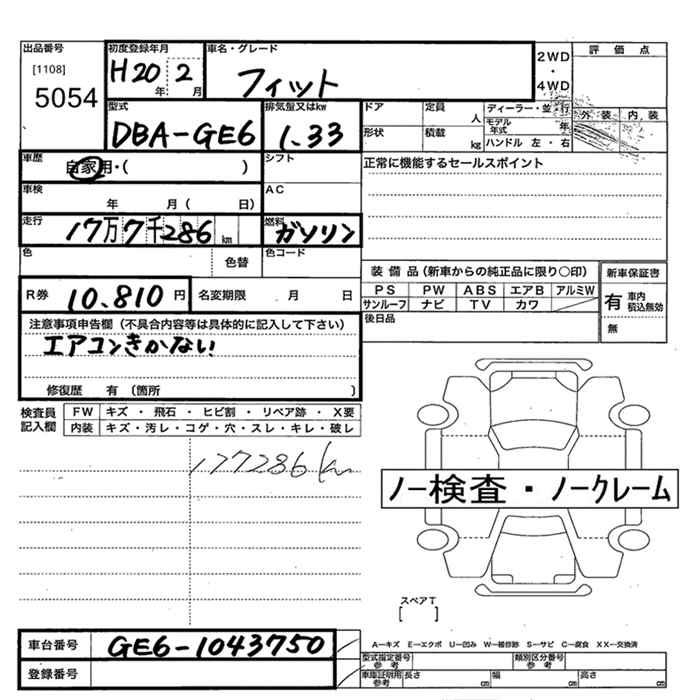 出品番号 初度登録年月 車名・グレード 評価点
[1108] H20年 2月 フィット 2WD・4WD
5054
型式 排気量又はkw ドア 定員 人 ディーラー・並・行 外装 内装
DBA-GE6 1.33 形状 積載 kg モデル年式 年 ハンドル 左・右
車歴 自家用・( ) シフト 正常に機能するセールスポイント
車検 年 月( 日) AC
走行 17万7千286km 燃料 ガソリン
色 色替 色コード
装備品(新車からの純正品に限り○印) 新車保証書
PS PW ABS エアB アルミW 有 車内積込無効
サンルーフ ナビ TV カワ 無
R券 10.810円 名変期限 月 日
後日品
注意事項申告欄(不具合内容等は具体的に記入して下さい)
エアコンきかない
修復歴 有(箇所 )
検査員記入欄 FW キズ・飛石・ヒビ割・リペア跡・X要
内装 キズ・汚レ・コゲ・穴・スレ・キレ・破レ
177286km
ノー検査・ノークレーム
スペアT
[ ]
車台番号 GE6-1043750
A－キズ E－エクボ U－凹み W－補修跡 S－サビ C－腐食 XX－交換済
型式指定番号参考 類別区分番号参考
登録番号 車庫証明用参考 長さ cm 幅 cm 高さ cm